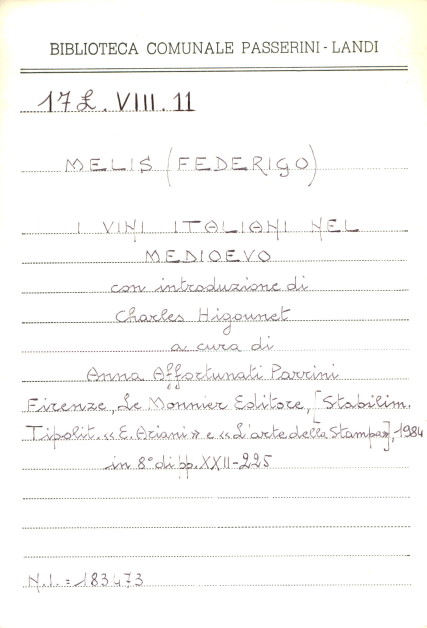 BIBLIOTECA COMUNALE PASSERINI - LANDI
17 £. VIII. 11
MELIS (FEDERIGO)
I VINI ITALIANI NEL
MEDIOEVO
con introduzione di
Charles Higounet
a cura di
Anna Affortunati Parrini
Firenze, Le Monnier Editore, [Stabilim.
Tipolit. << E. Ariani >> e << L'arte della Stampa>>], 1984
in 8° di pp. XXII-225
N.I. = 183473